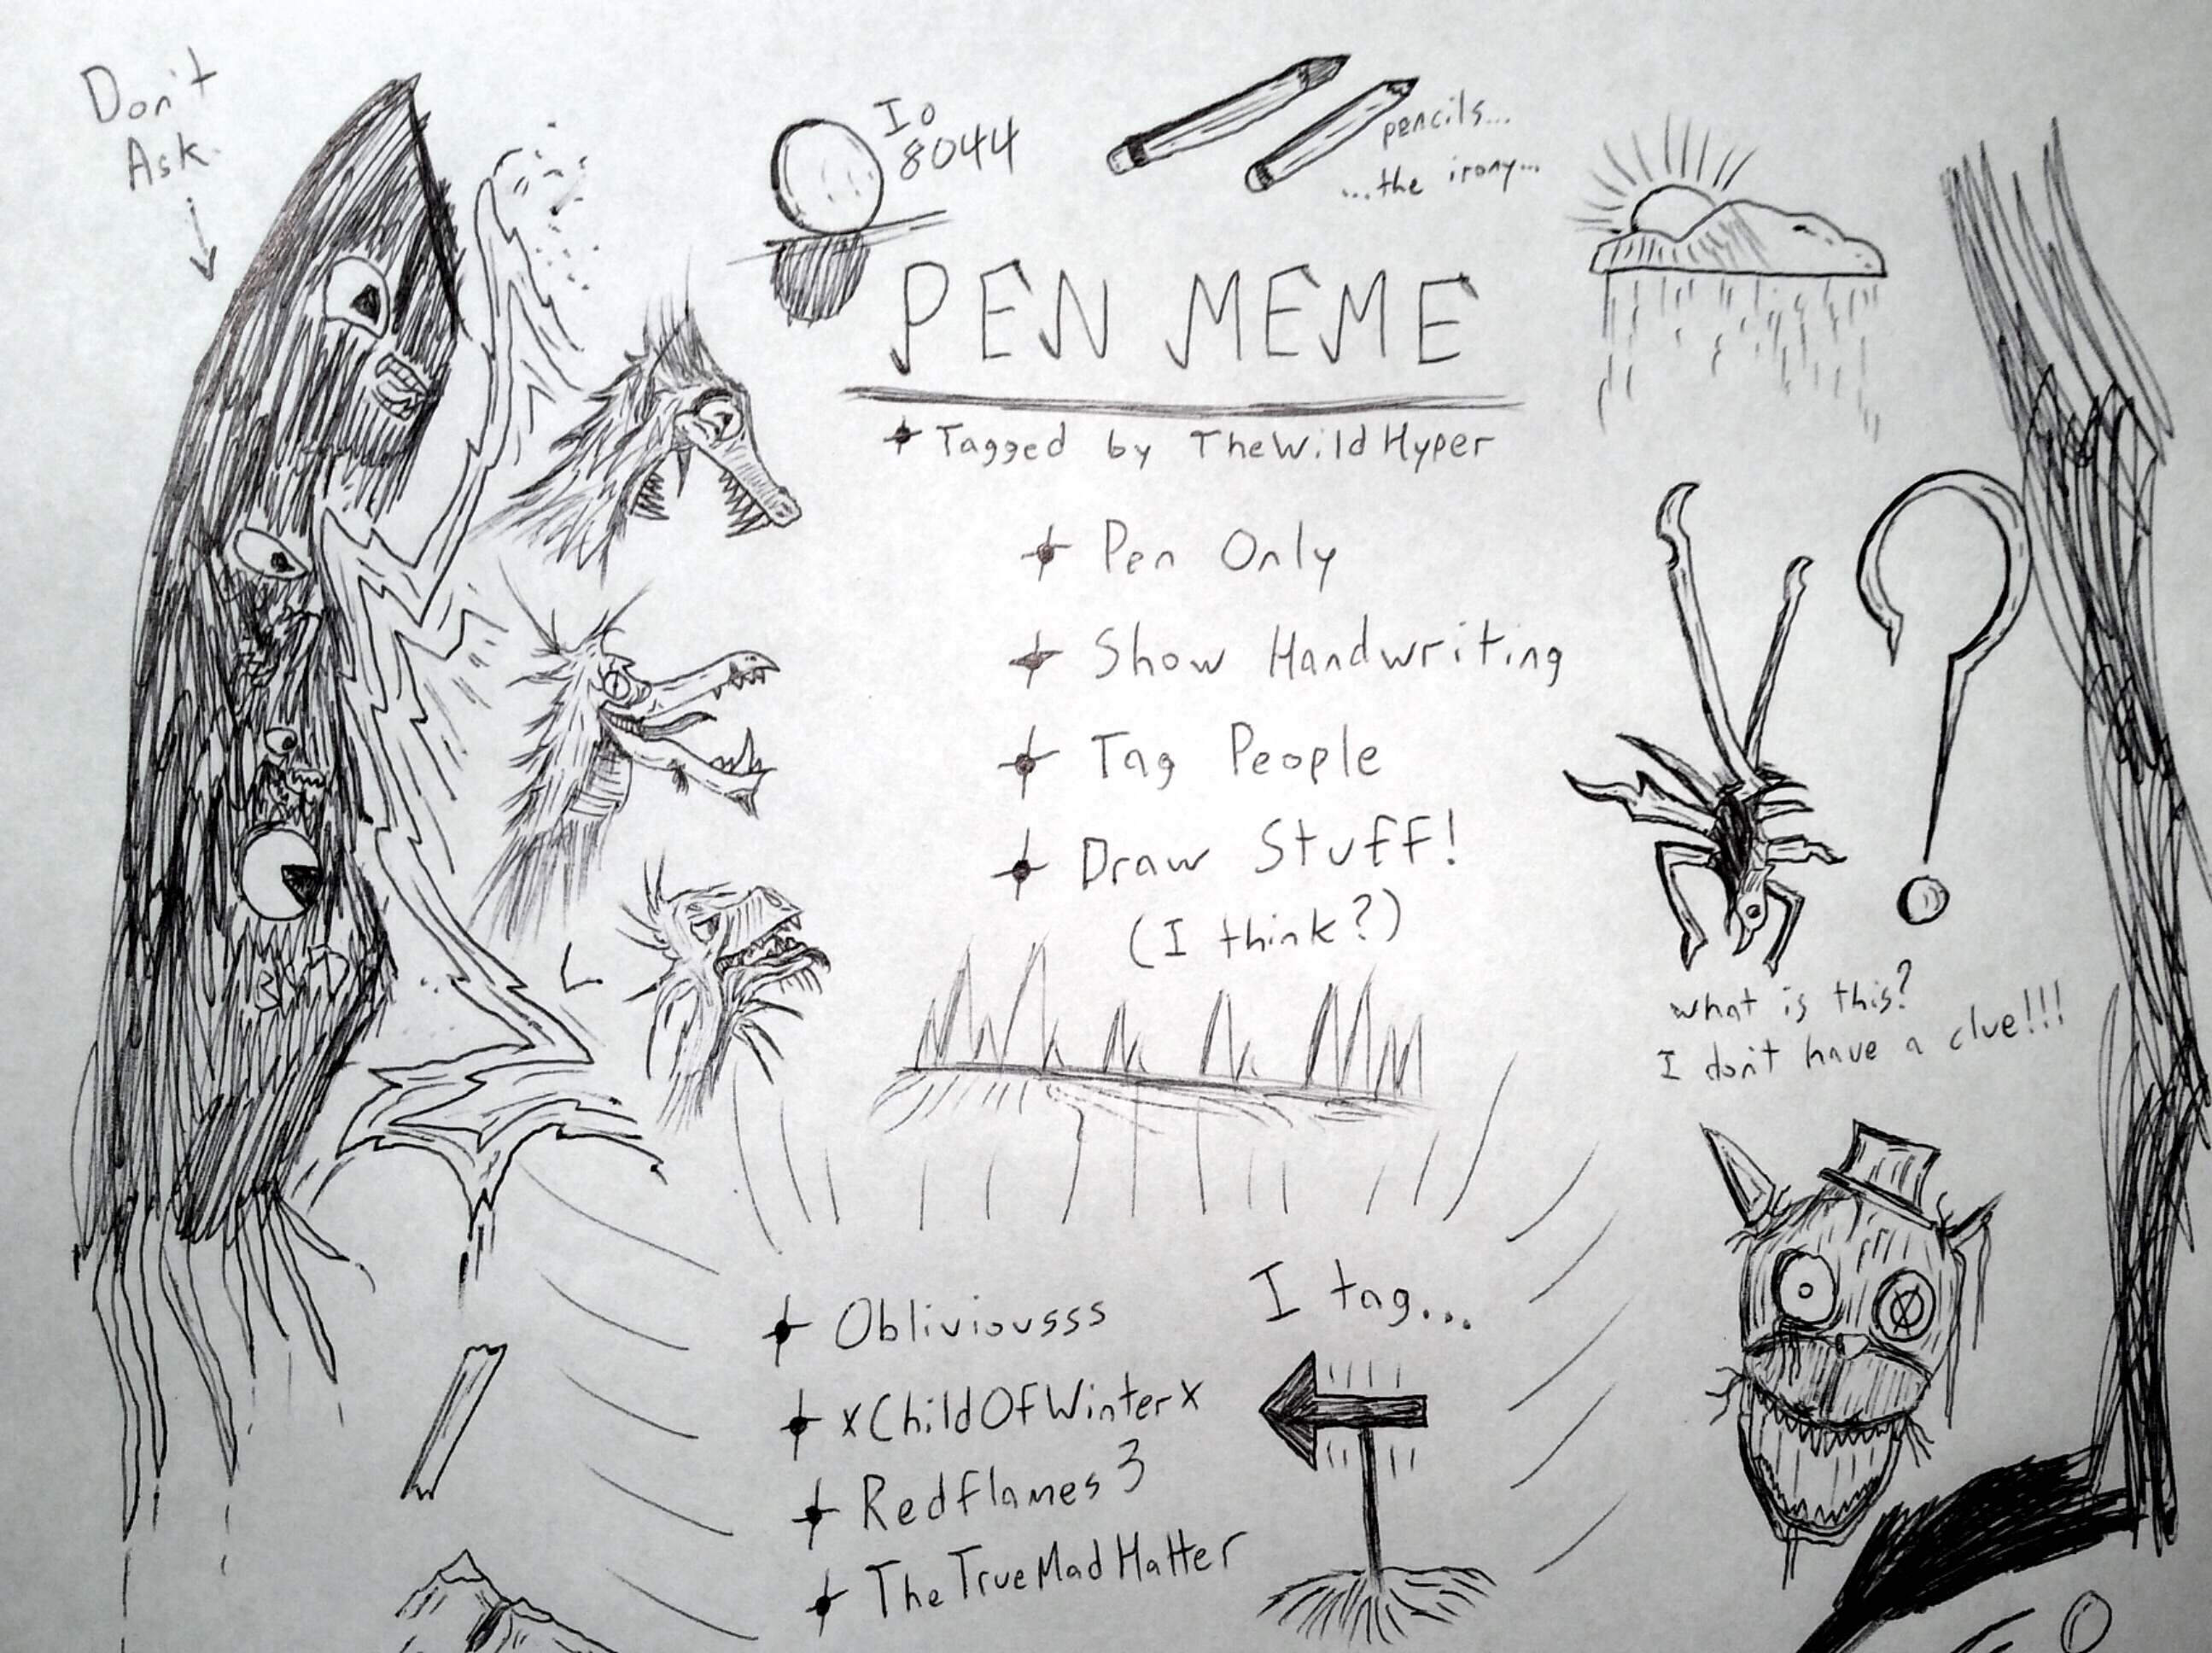 Don't
Ask
Io
8044
pencils...
...the irony...
PEN MEME
Tagged by TheWildHyper
Pen Only
Show Handwriting
Tag People
Draw Stuff!
(I think?)
what is this?
I don't have a clue!!!
I tag...
Obliviousss
xChildOfWinterx
Redflames3
TheTrueMadHatter